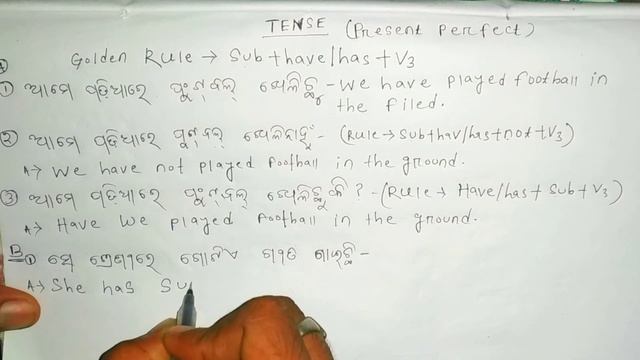 TENSE (Present perfect)
A Golden Rule → Sub+have/has+V3
① ଆମେ ପଡ଼ିଆରେ ଫୁଟ୍‌ବଲ୍ ଖେଳିଛୁ - We have played football in
the filed.
② ଆମେ ପଡ଼ିଆରେ ଫୁଟ୍‌ବଲ୍ ଖେଳିନାହୁଁ - (Rule→Sub+hav/has+not+V3)
A→ We have not played football in the ground.
③ ଆମେ ପଡ଼ିଆରେ ଫୁଟ୍‌ବଲ୍ ଖେଳିଛୁ କି ? - (Rule→ Have/has+ Sub+V3)
A→ Have we played football in the ground.
B ① ସେ ଶ୍ରେଣୀରେ ଗୋଟିଏ ଗୀତ ଗାଇଛି -
A→ She has Su